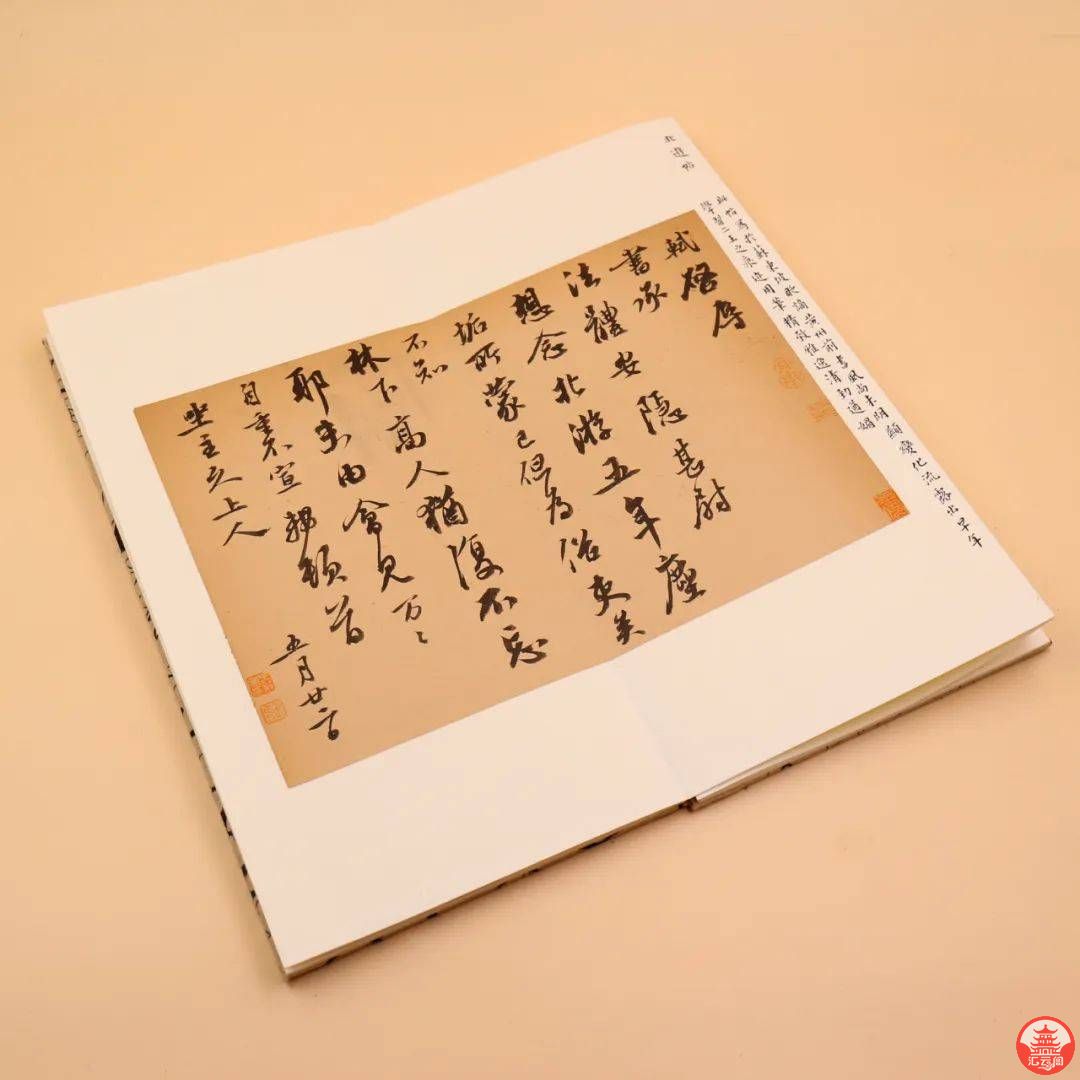 北遊帖
此帖寫於蘇東坡貶謫黃州前書風尚未明顯變化流露出早年
學習二王之痕迹用筆精致雅逸清勁遒媚
軾啓辱
書承
法體安隱甚尉
想念北游五年塵
垢所蒙已化为俗吏矣
不知
林下高人猶復不忘
耶未由會見万〻
自重不宣軾頓首
坐主久上人
五月廿二日
汇云阁